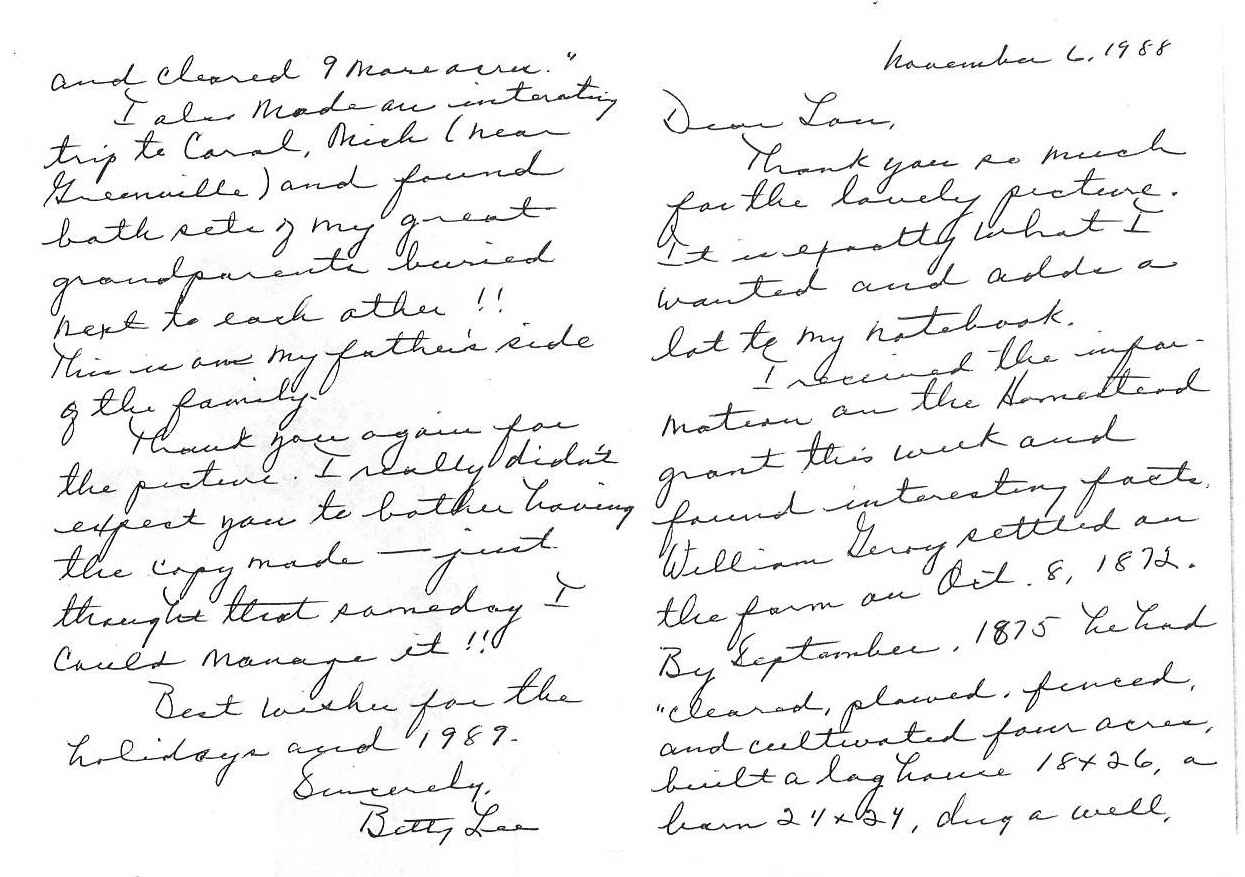 November 6, 1988
Dear Lou,
Thank you so much
for the lovely picture.
It is exactly what I
wanted and adds a
lot to my notebook.
I received the infor-
mation on the Homestead
grant this week and
found interesting facts.
William Geroy settled on
the farm on Oct. 8, 1872.
By September, 1875 he had
"cleared, plowed, fenced,
and cultivated four acres,
built a log house 18x26, a
barn 24x24, dug a well,
and cleared 9 more acres."
I also made an interesting
trip to Coral, Mich (near
Greenville) and found
both sets of my great
grandparents buried
next to each other!!
This is on my father's side
of the family.
Thank you again for
the picture. I really didn't
expect you to bother having
the copy made — just
thought that someday I
could manage it!!
Best wishes for the
holidays and 1989.
Sincerely,
Betty Lee